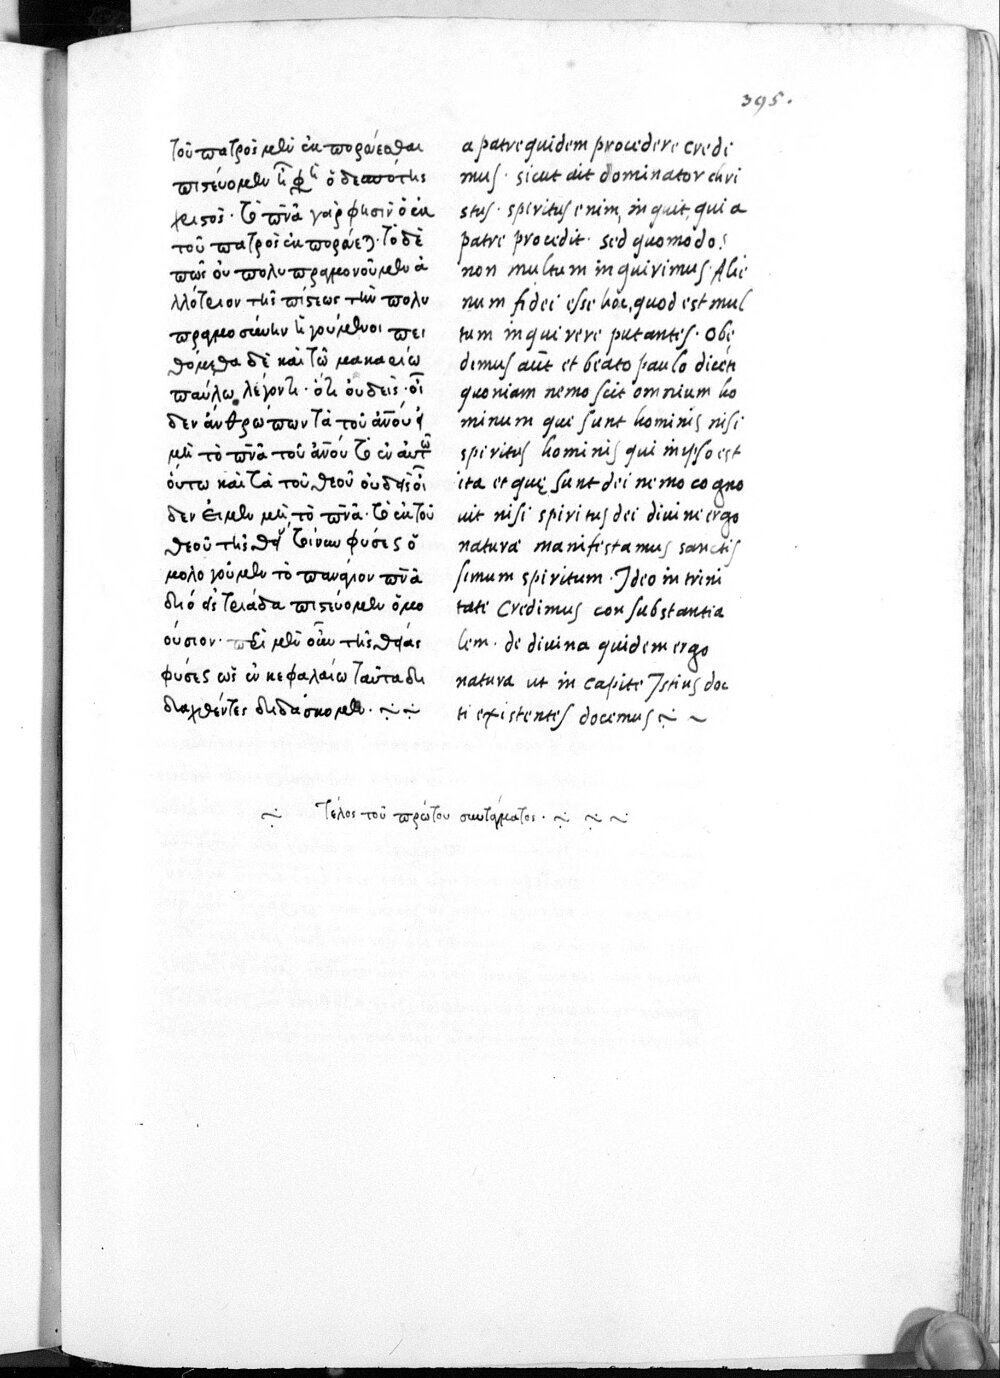 395.
τοῦ πατρὸς μὲν ἐκπορεύεσθαι
πιστεύομεν ὁ δεσπότης
χριστός· τὸ πνᾶ γάρ φησιν ὃ ἐκ
τοῦ πατρὸς ἐκπορεύε· τὸ δὲ
πῶς οὐ πολυπραγμονοῦμεν ἀ
λλότριον τῆς πίστεως τὴν πολυ
πραγμοσύνην ἡγούμενοι πει
θόμεθα δὲ καὶ τῶ μακαρίω
παύλω λέγοντι· ὅτι οὐδεὶς οἶ
δεν ἀνθρώπων τὰ τοῦ ἀνου
μὴ τὸ πνᾶ τοῦ ἀνου τὸ ἐν αὐτῶ
οὕτω καὶ τὰ τοῦ θεοῦ οὐδεὶς οἶ
δεν εἰ μὴ τὸ πνᾶ· τὸ ἐκ τοῦ
θεοῦ τῆς φύσεως ὁ
μολογοῦμεν τὸ πανάγιον πνᾶ
διὸ εἰς τριάδα πιστεύομεν ὁμο
ούσιον· περὶ μὲν οὖν τῆς θείας
φύσεως ὡς ἐν κεφαλαίω ταῦτα δι
διαχθέντες διδάσκομεν· ~ ~
a patre quidem procedere crede
mus · sicut ait dominator chri
stus · spiritus enim, inquit, qui a
patre procedit · sed quomodo?
non multum inquirimus · Alie
num fidei esse hoc, quod est mul
tum inquirere putantes · Obe
demus aut et beato paulo dicen
quoniam nemo scit omnium ho
minum que sunt hominis nisi
spiritus hominis qui in ipso est
ita et quę sunt dei nemo cogno
uit nisi spiritus dei diuine ergo
naturae manifestamus sanctis
simum spiritum · Ideo in trini
tate credimus consubstantia
lem · de diuina quidem ergo
natura ut in capite Istius doc
ti existentes docemus ~ ~
~ τέλος τοῦ πρώτου συντάγματος · ~ ~ ~